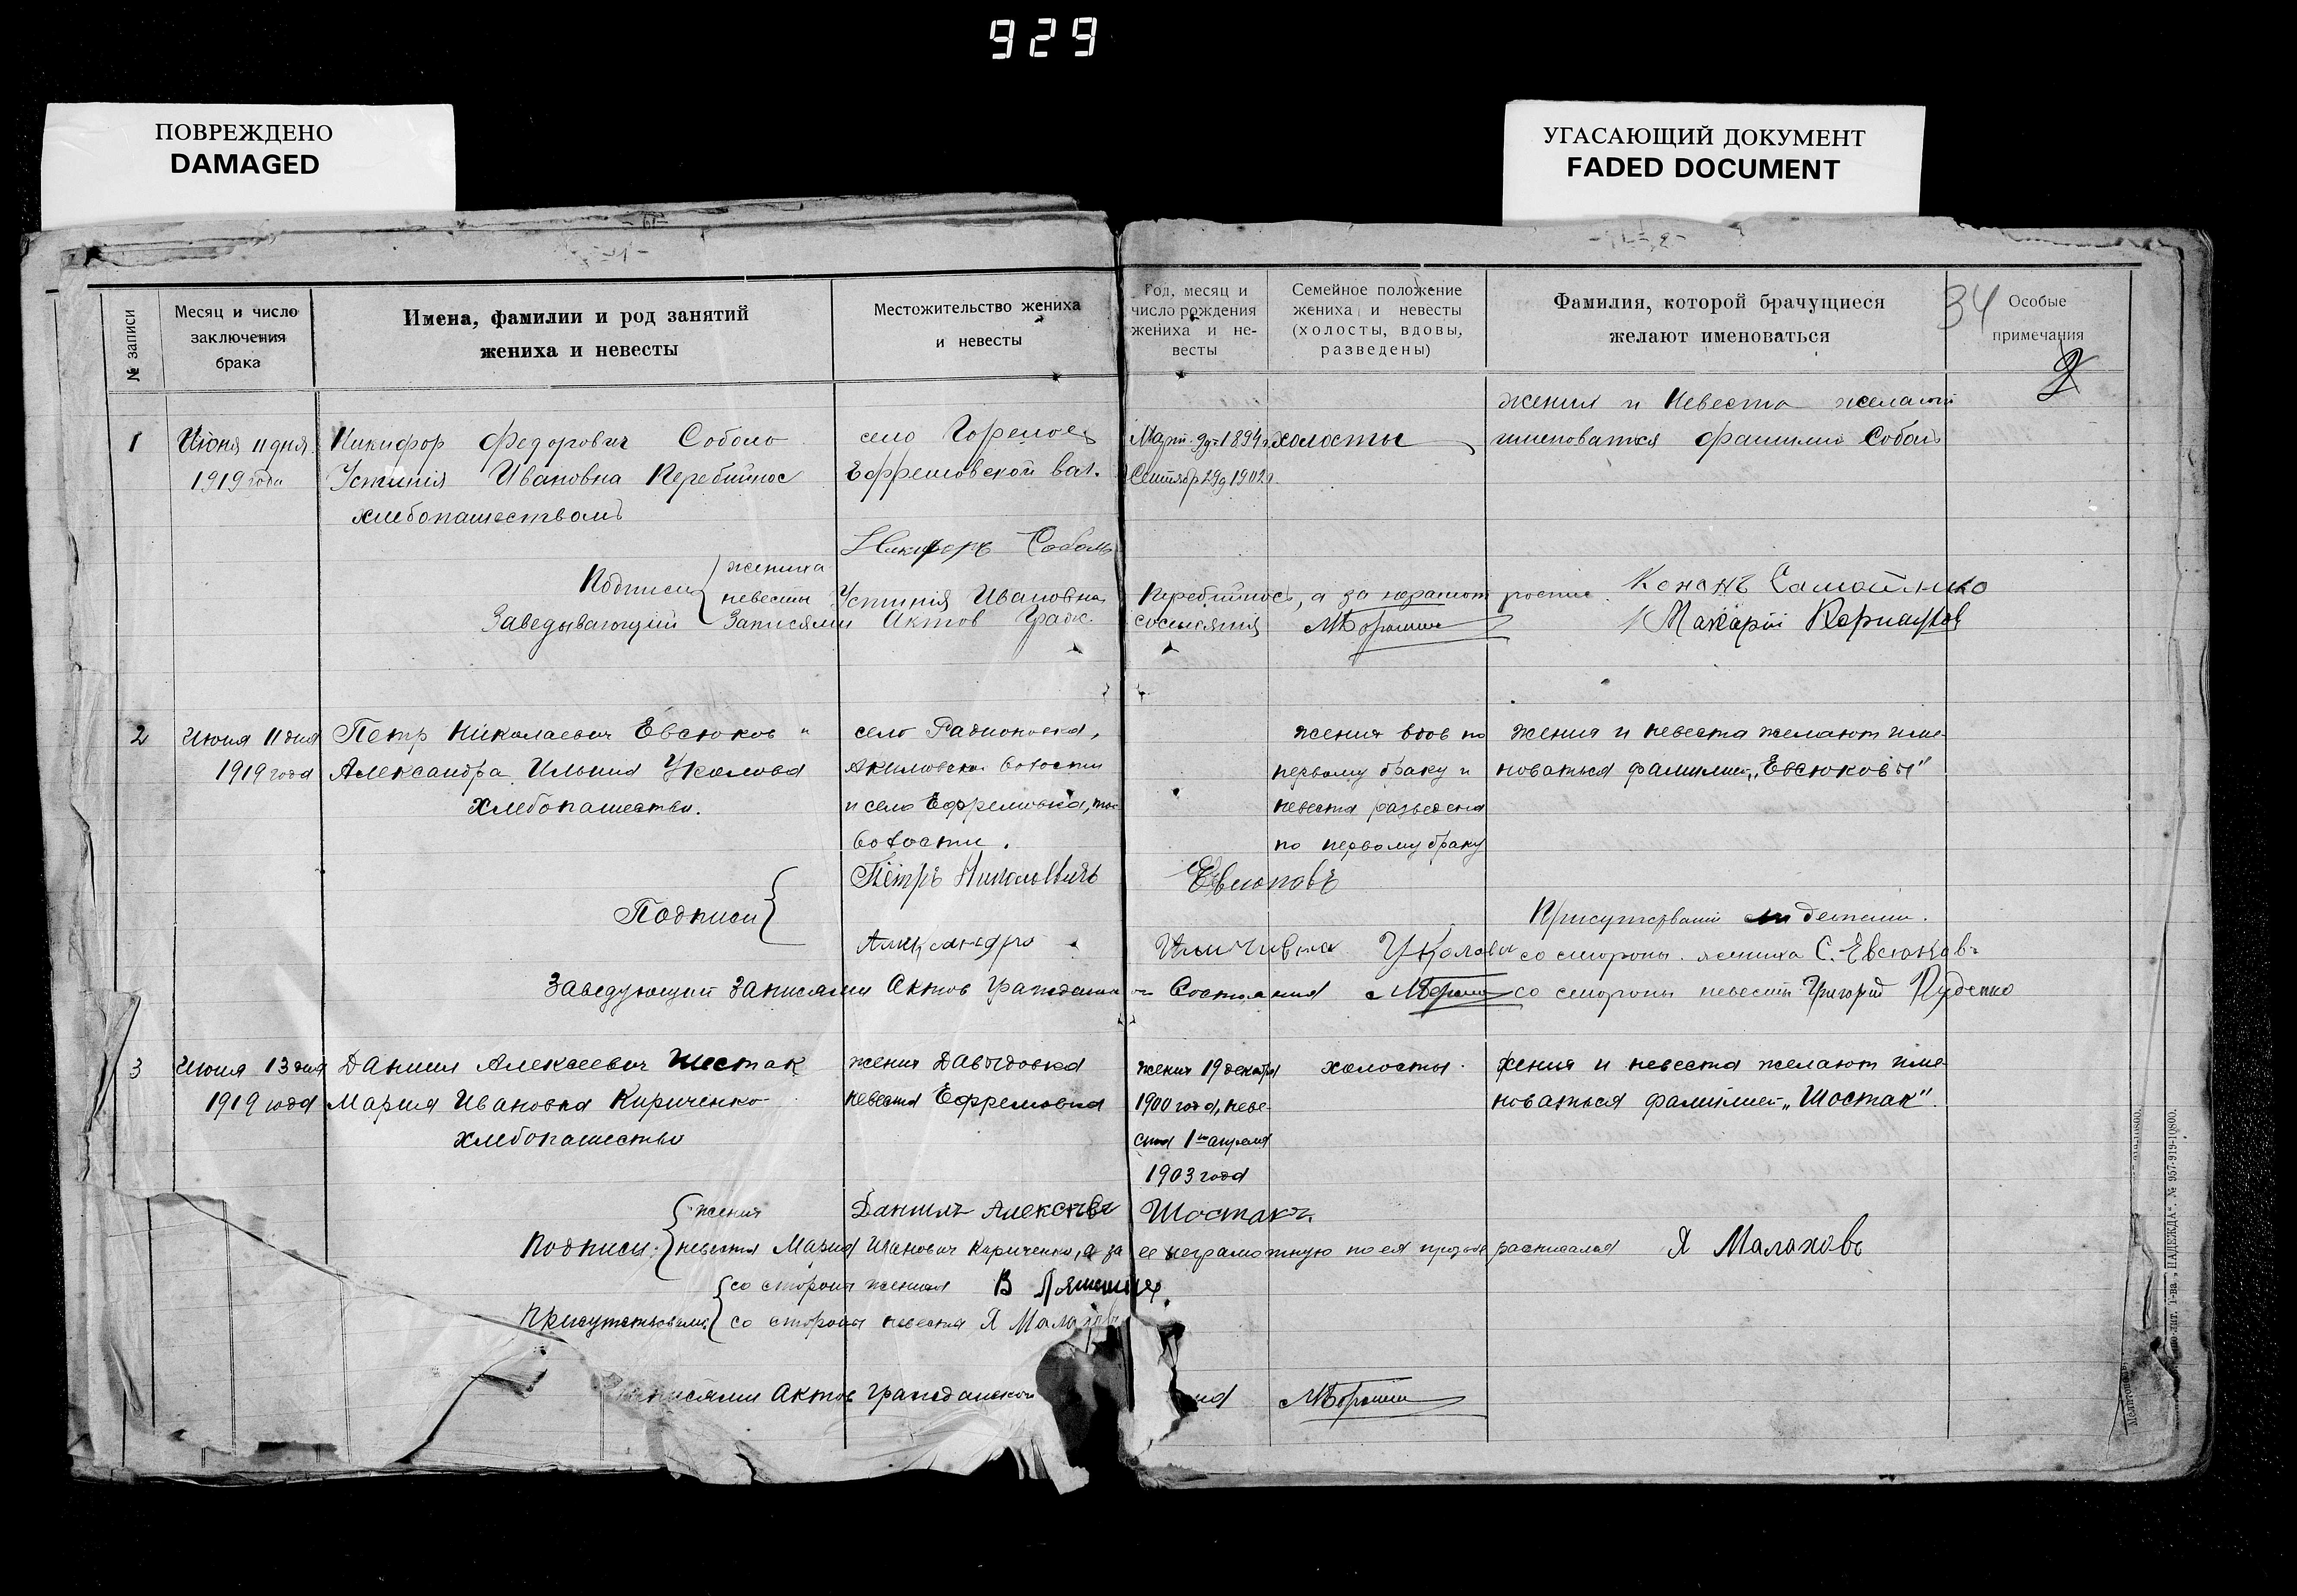 929
ПОВРЕЖДЕНО
DAMAGED
УГАСАЮЩИЙ ДОКУМЕНТ
FADED DOCUMENT
№ записи
Месяц и число заключения брака
Имена, фамилии и род занятий жениха и невесты
Местожительство жениха и невесты
Год, месяц и число рождения жениха и невесты
Семейное положение жениха и невесты (холосты, вдовы, разведены)
Фамилия, которой брачущиеся желают именоваться
34
Особые примечания
2
жених и Невеста желают
1 Июня 11 дня Никифор Федорович Соболь село Горелое Март 9д 1894г. холосты именоватся фамилия Соболь
1919 года Устиния Ивановна Перебийнос Ефремовской вол. Сентябр 29д 1902г.
хлебопашеством
Никифоръ Соболь
Подписи жениха
невесты Устиния Ивановна Перебийнось, а за роспис. Кононъ Самойленко
Заведывающий Записями Актов Граж. состояния Макарий
2 Июня 11 дня Петр Николаевич Евсюков и село Радионовка, жених вдов по жених и невеста желают име-
1919 года Александра Ильина Уколова Акимовской волости первому браку и новаться фамилией „Евсюковы"
хлебопашество. и село Ефремовка, той невеста разведена
волости. по первому браку
Петръ Николаевичъ Евсюковъ
Подписи Присутствовали
Александра Уколова со стороны жениха С. Евсюковъ
Заведующий Записями Актов Гражданского Состояния со стороны невесты Григорий
3 Июня 13 дня Даниил Алексеевич Шостак жених Давыдовка жених 19 декабря холосты. жених и невеста желают име-
1919 года Мария Ивановна Кириченко невеста Ефремовка 1900 года, неве- новаться фамилией „Шостак".
хлебопашество ста 1го апреля
1903 года
жених Данилъ Шостакъ
Подписи: невеста Мария Кириченко, а за ее неграмотную по ея просьбе расписался Я Малаховъ
со стороны жениха В
Присутствовали со стороны невесты Я Малаховъ
записями Актов Гражданского
„НАДЕЖДА". № 957-919-10800.
Мелитополь,